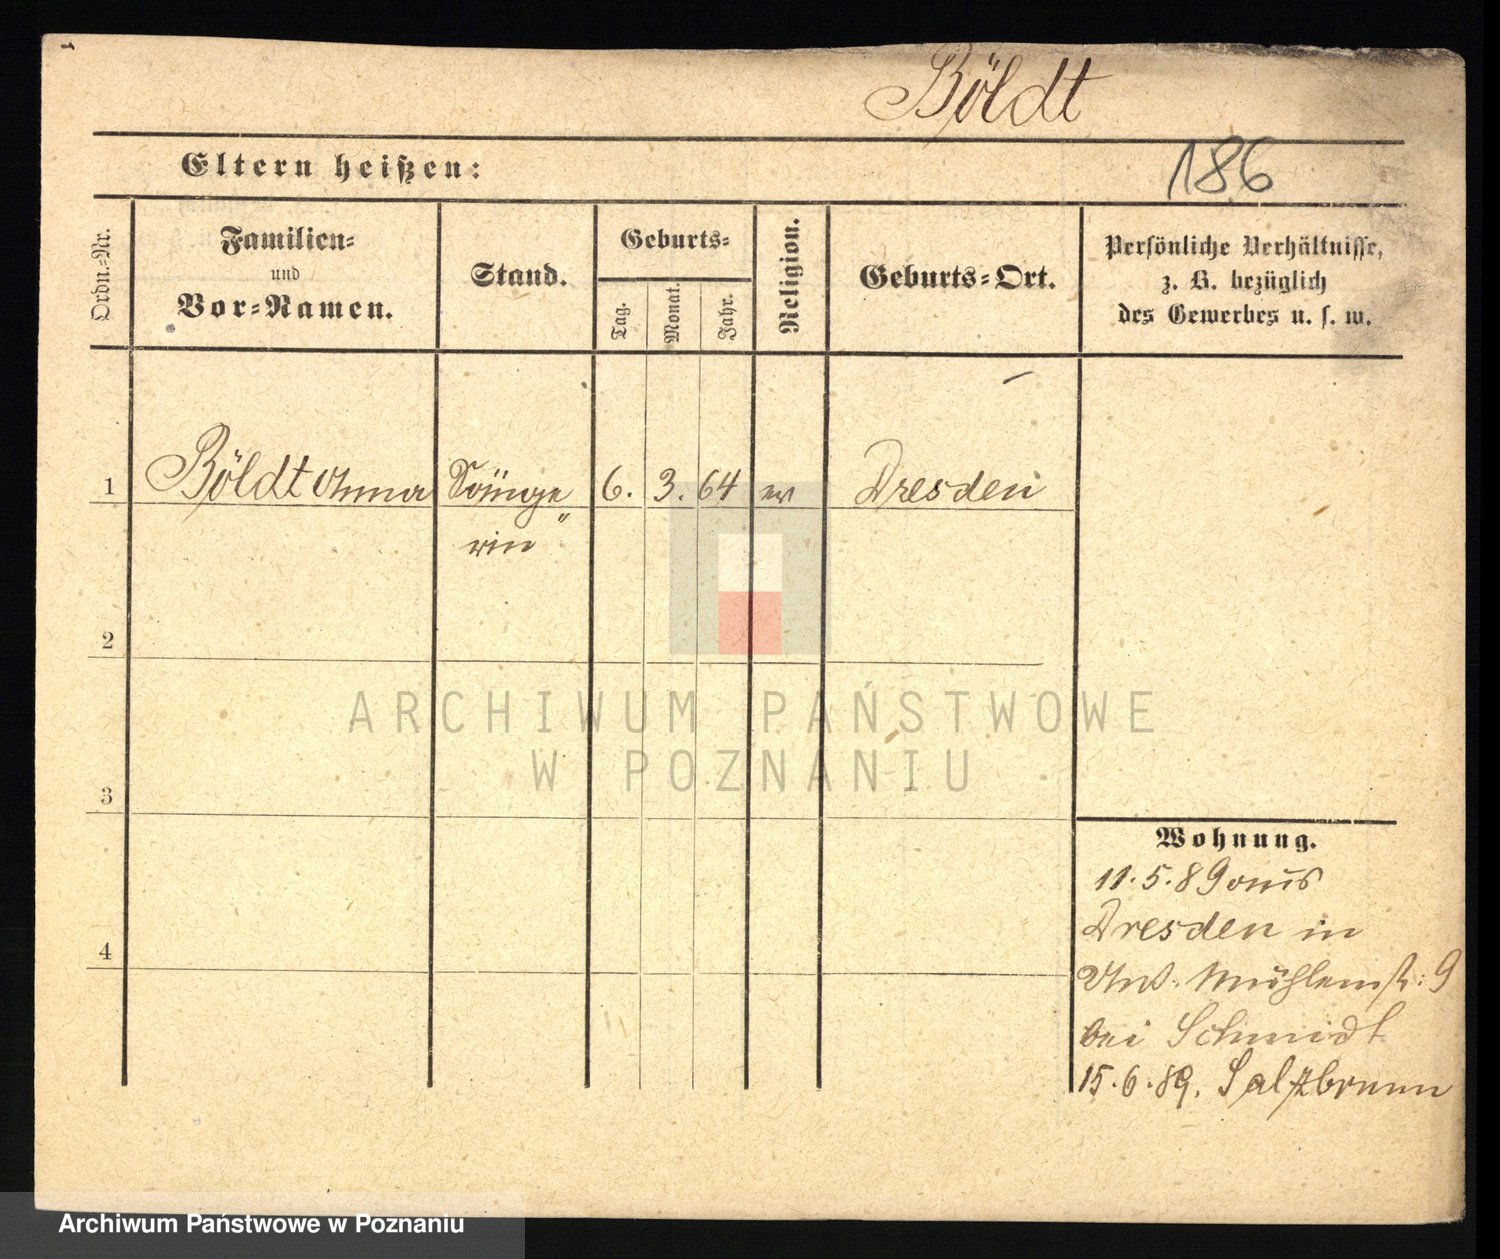 Böldt
186
Eltern heißen:
Ordn.-Nr.
Familien-
und
Vor-Namen.
Stand.
Geburts-
Tag.
Monat.
Jahr.
Religion.
Geburts-Ort.
Persönliche Verhältnisse,
z. B. bezüglich
des Gewerbes u. s. w.
1 Böldt Anna Sänge 6. 3. 64 ev Dresden
rin
2
3
4
Wohnung.
11.5.89 aus
Dresden in
Mühlenstr: 9
bei Schmidt
15.6.89. Salzbrunn
ARCHIWUM PAŃSTWOWE
W POZNANIU
Archiwum Państwowe w Poznaniu